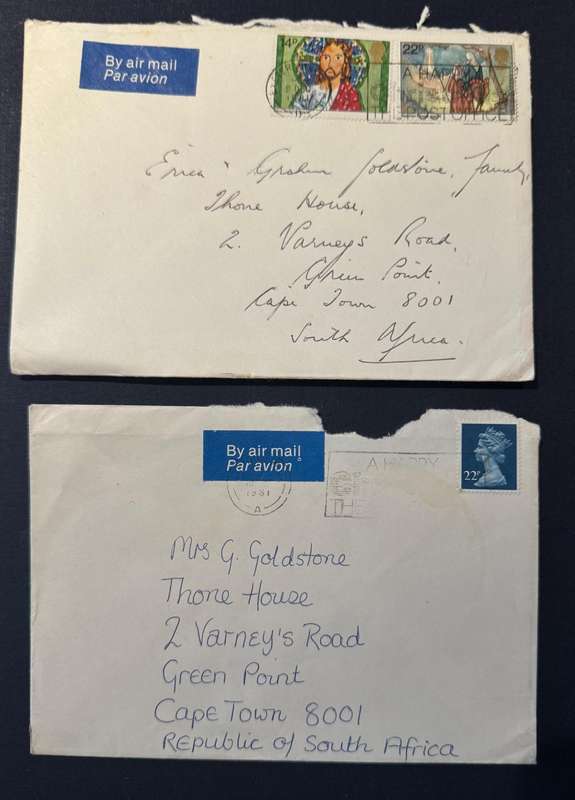 By air mail
Par avion
14P
22P
A HAPPY
POST OFFICE
Erica & Graham Goldstone, Family,
Thone House,
2. Varney's Road,
Green Point,
Cape Town 8001
South Africa.
By air mail
Par avion
1981
A
A HAPPY
22P
Mrs G. Goldstone
Thone House
2 Varney's Road
Green Point
Cape Town 8001
Republic of South Africa